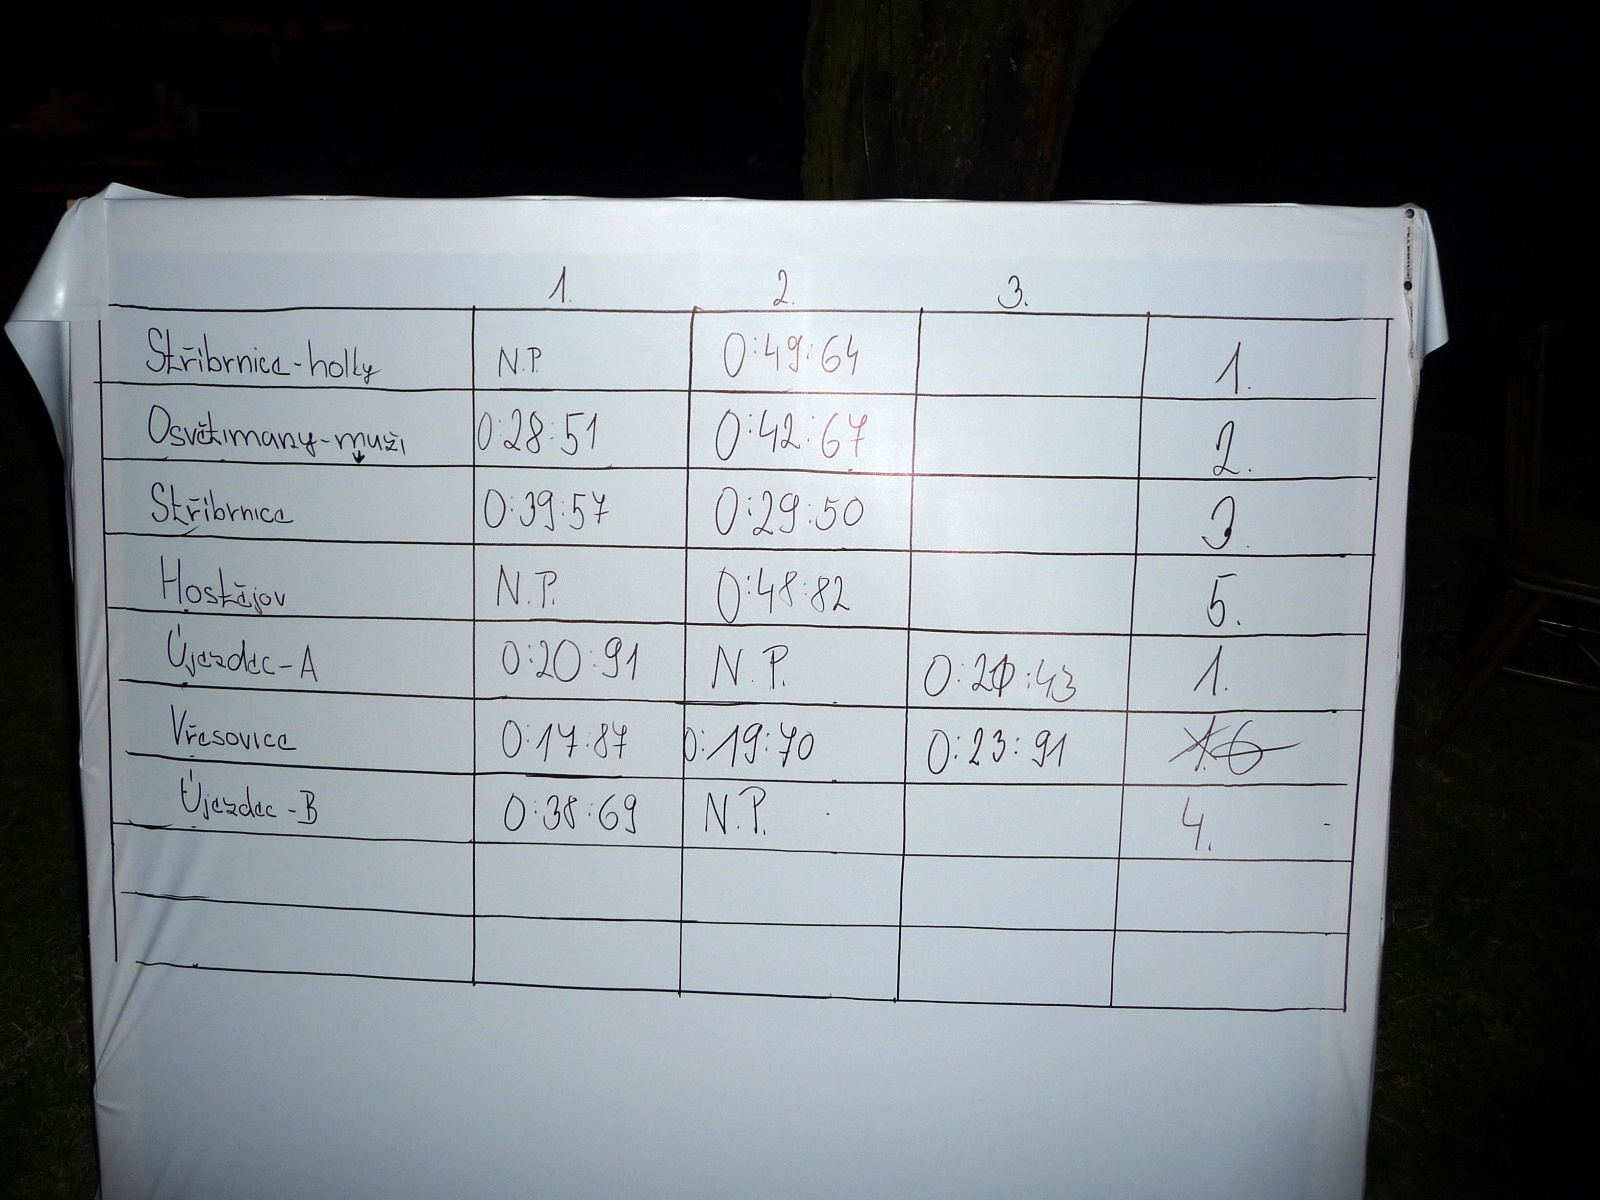 1. 2. 3.
Střibrnice-holky N.P. 0:49:64 1.
Osvětimany-muži 0:28:51 0:42:67 2.
Střibrnice 0:39:57 0:29:50 3.
Hostějov N.P. 0:48:82 5.
Újezdec-A 0:20:91 N.P. 0:20:43 1.
Vřesovice 0:17:87 0:19:70 0:23:91
Újezdec-B 0:38:69 N.P. 4.